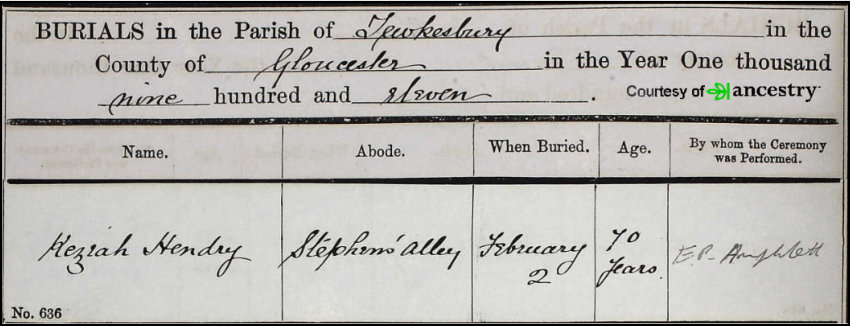 BURIALS in the Parish of Tewkesbury in the
County of Gloucester in the Year One thousand
nine hundred and eleven. Courtesy of ancestry
Name. Abode. When Buried. Age. By whom the Ceremony
was Performed.
Keziah Hendry Stephens' Alley February 70 E.P. Amphlett
2 Years.
No. 636